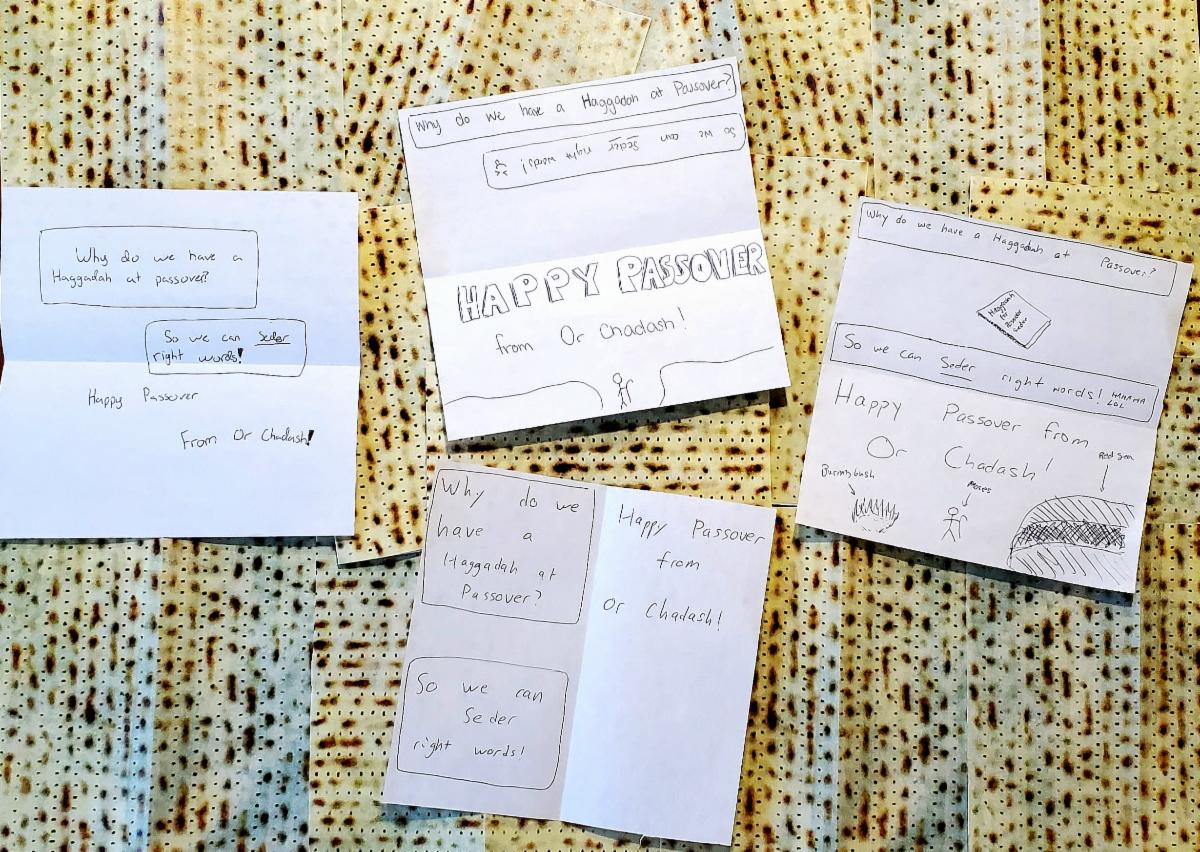 Why do we have a
Haggadah at passover?
So we can Seder
right words!
Happy Passover
From Or Chadash!
Why do we have a Haggadah at Passover?
So we can Seder right words!
HAPPY PASSOVER
from Or Chadash!
Why do we
have a
Haggadah at
Passover?
So we can
Seder
right words!
Happy Passover
from
Or Chadash!
Why do we have a Haggadah at Passover?
Haggadah
for
Passover
Seder
So we can Seder right words! HAHAHA
LOL
Happy Passover from
Or Chadash!
Burning bush
Moses
Red Sea